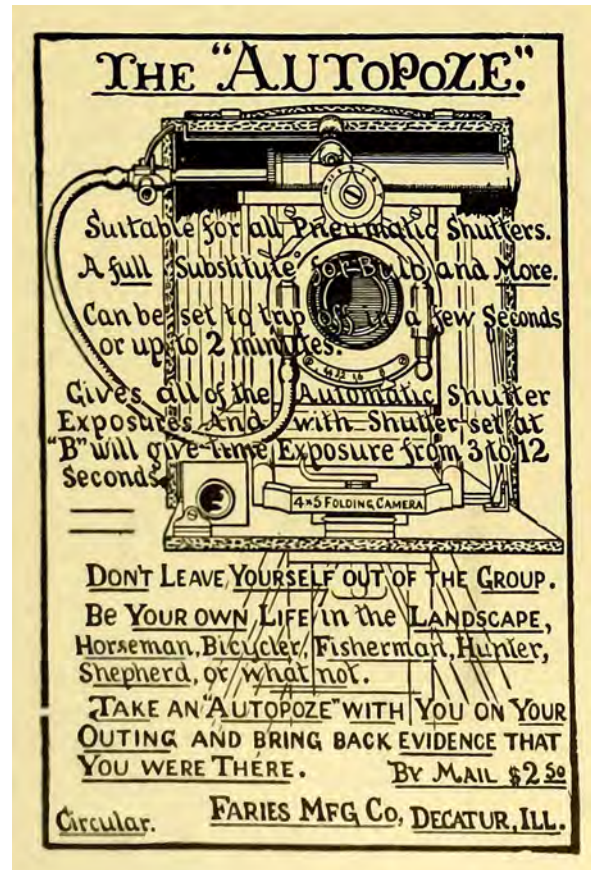 THE "AUTOPOZE."
Suitable for all Pneumatic Shutters.
A full "Substitute" for Bulb and More.
Can be set to trip off in a few Seconds
or up to 2 minutes.
Gives all of the Automatic Shutter
Exposures And with Shutter set at
"B" will give time Exposure from 3 to 12
Seconds.
4×5 FOLDING CAMERA
DON'T LEAVE YOURSELF OUT OF THE GROUP.
BE YOUR OWN LIFE in the LANDSCAPE,
Horseman, Bicycler, Fisherman, Hunter,
Shepherd, or what not.
TAKE AN "AUTOPOZE" WITH YOU ON YOUR
OUTING AND BRING BACK EVIDENCE THAT
YOU WERE THERE. BY MAIL $2 50
Circular. FARIES MFG CO, DECATUR, ILL.